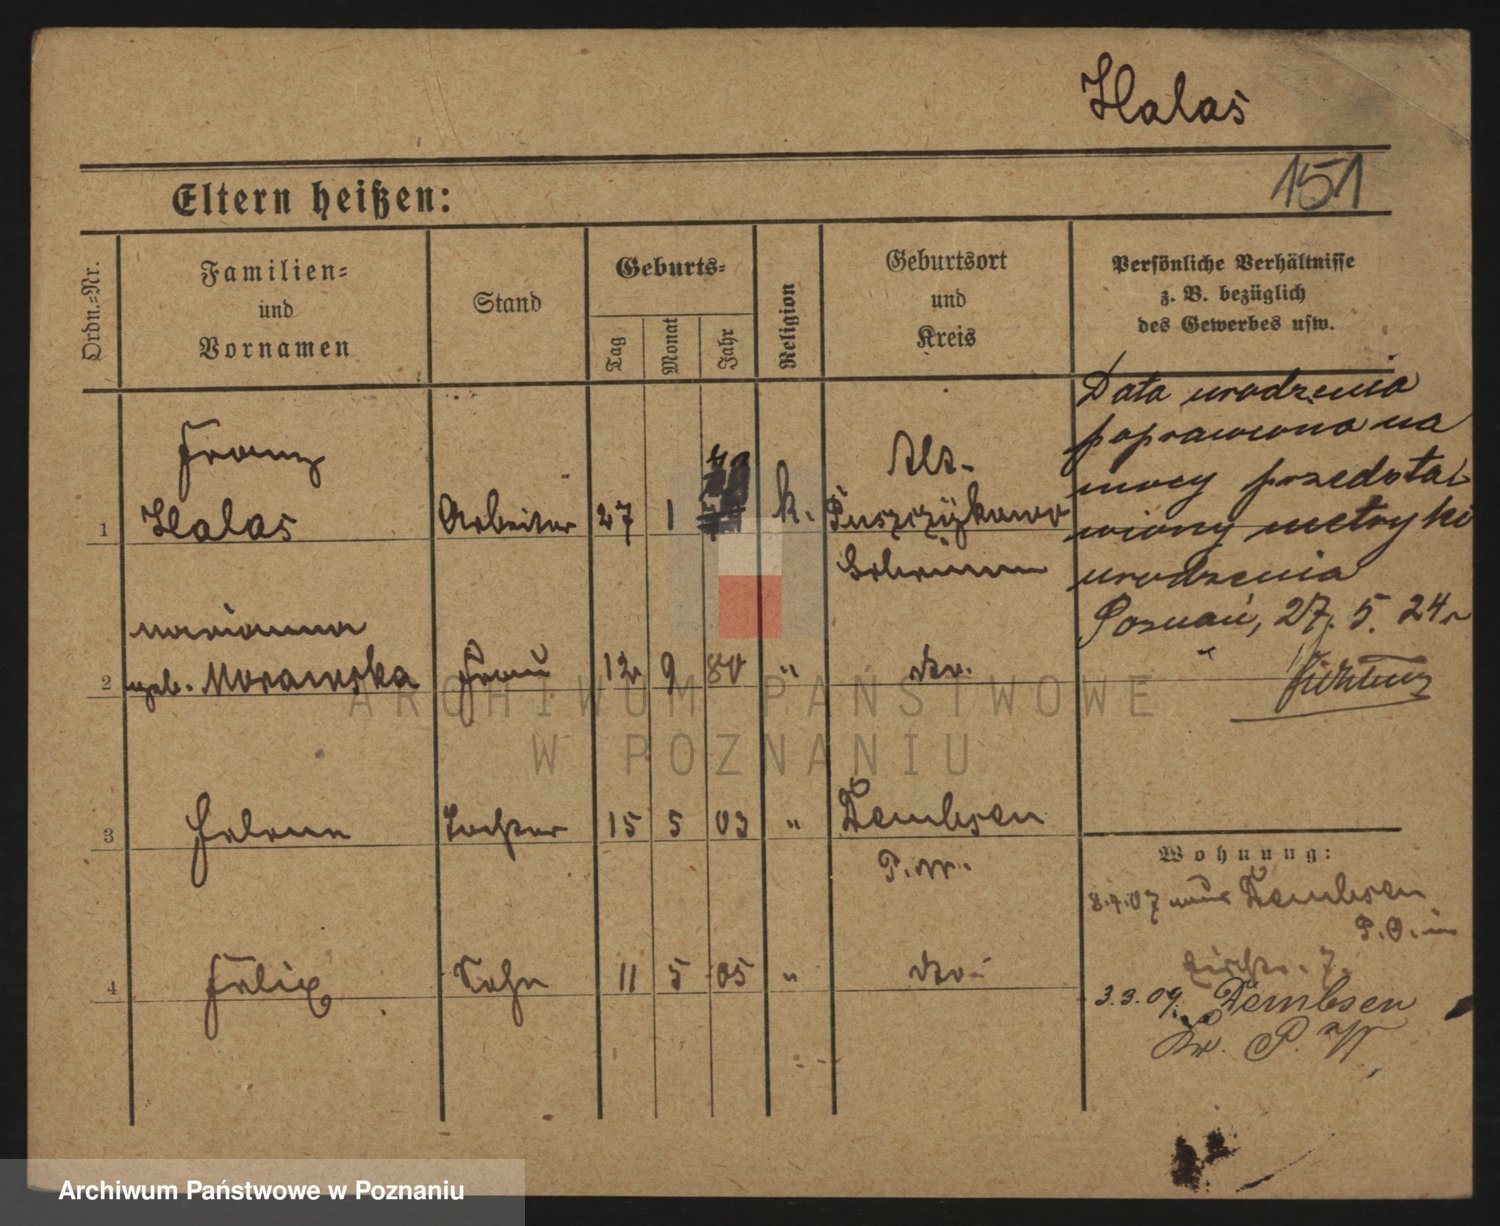 Halas
151
Eltern heißen:
Ordn.=Nr.
Familien=
und
Vornamen
Stand
Geburts=
Tag
Monat
Jahr
Religion
Geburtsort
und
Kreis
Persönliche Verhältnisse
z. B. bezüglich
des Gewerbes usw.
1
Franz
Halas
Arbeiter
27
1
k.
Alt-
Puszczykowo
Schrimm
Data urodzenia
poprawiona na
mocy przedsta-
wionej metryki
urodzenia
Poznań, 27. 5. 24 r
2
Marianna
geb. Morawska
Frau
12
9
80
"
do.
3
Helene
Tochter
15
5
03
"
Dembsen
P. W.
4
Felix
Sohn
11
5
05
"
do
Wohnung:
8.4.07 aus Dembsen
P. O. in
7.
3.3.09. Dembsen
Kr. P. W
ARCHIWUM PAŃSTWOWE
W POZNANIU
Archiwum Państwowe w Poznaniu